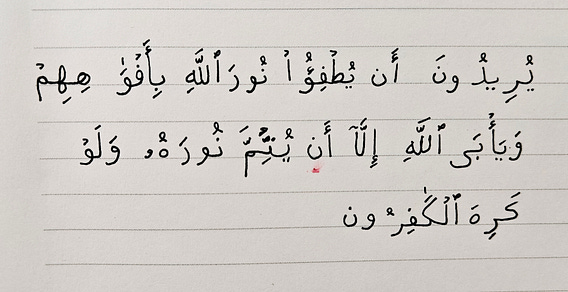 يُرِيدُونَ أَن يُطْفِؤُا۟ نُورَ ٱللَّهِ بِأَفْوَٰهِهِمْ
وَيَأْبَى ٱللَّهُ إِلَّآ أَن يُتِمَّ نُورَهُۥ وَلَوْ
كَرِهَ ٱلْكَٰفِرُون